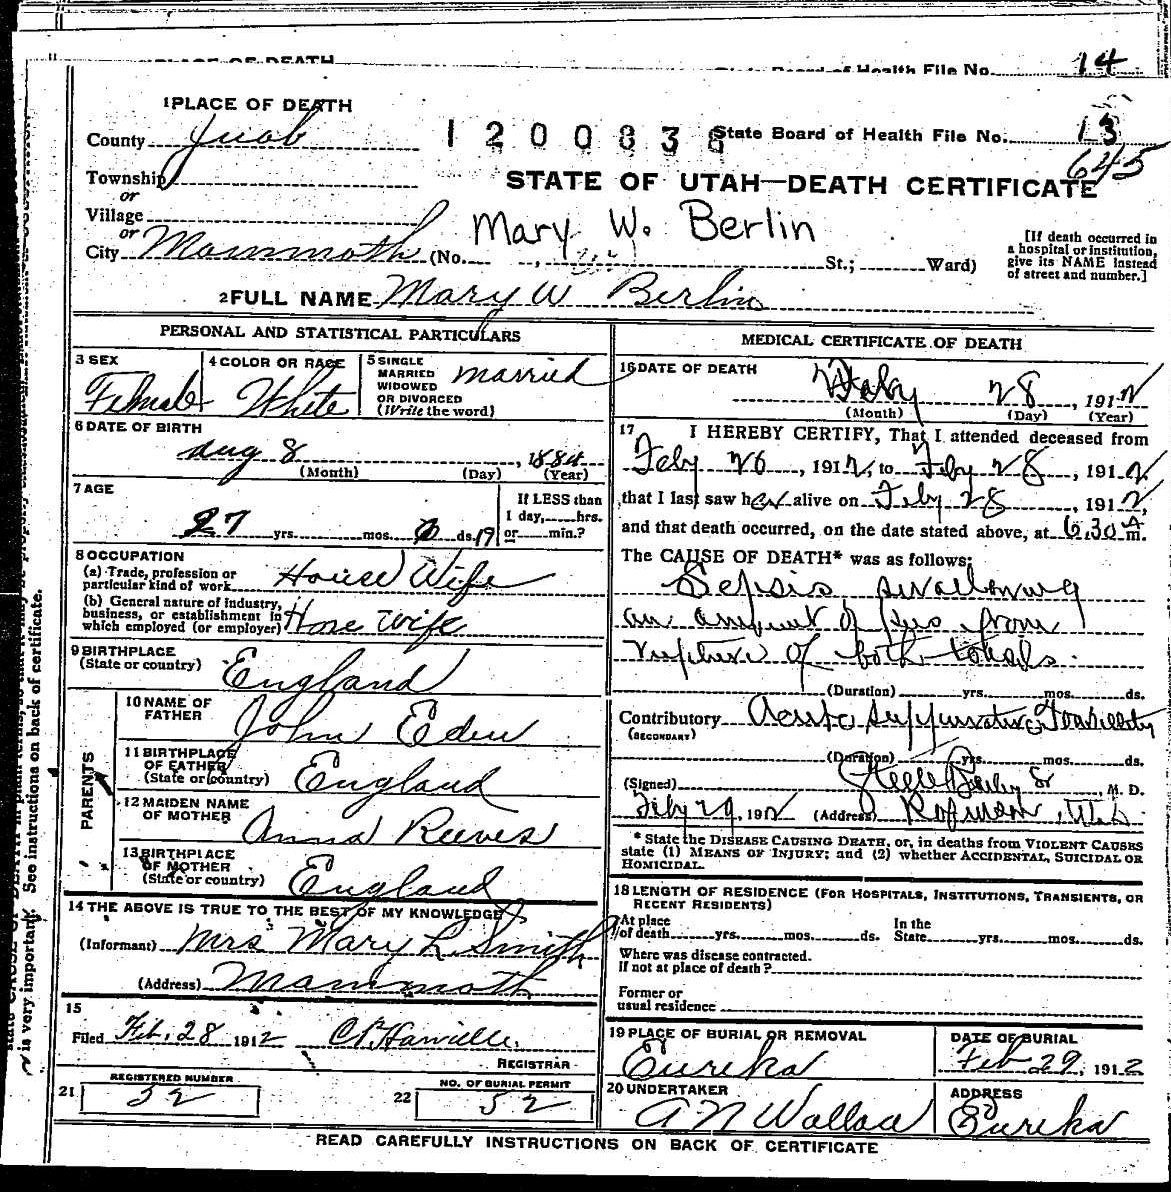 14
State Board of Health File No.
1 PLACE OF DEATH
County Juab
1 2 0 0 8 3 8 State Board of Health File No. 13
645
Township
or
STATE OF UTAH—DEATH CERTIFICATE
Village
or
Mary W. Berlin
City Mammoth (No. , St.; Ward)
[If death occurred in
a hospital or institution,
give its NAME instead
of street and number.]
2 FULL NAME Mary W Berlin
PERSONAL AND STATISTICAL PARTICULARS
3 SEX
Female
4 COLOR OR RACE
White
5 SINGLE
MARRIED
WIDOWED
OR DIVORCED
(Write the word)
married
6 DATE OF BIRTH
Aug 8, 1884
(Month) (Day) (Year)
7 AGE
27 yrs. mos. ds. 19
If LESS than
1 day, hrs.
or min.?
8 OCCUPATION
(a) Trade, profession or
particular kind of work House Wife
(b) General nature of industry,
business, or establishment in
which employed (or employer) Hose wife
9 BIRTHPLACE
(State or country) England
PARENTS
10 NAME OF
FATHER John Eden
11 BIRTHPLACE
OF FATHER
(State or country) England
12 MAIDEN NAME
OF MOTHER Anna Reeves
13 BIRTHPLACE
OF MOTHER
(State or country) England
14 THE ABOVE IS TRUE TO THE BEST OF MY KNOWLEDGE
(Informant) Mrs Mary L Smith
(Address) Mammoth
15
Filed Feb. 28 1912
REGISTRAR
21 REGISTERED NUMBER
52
22 NO. OF BURIAL PERMIT
52
MEDICAL CERTIFICATE OF DEATH
16 DATE OF DEATH
Feby 28, 1912
(Month) (Day) (Year)
17 I HEREBY CERTIFY, That I attended deceased from
Feby 26, 1912, to Feby 28, 1912
that I last saw her alive on Feby 28, 1912,
and that death occurred, on the date stated above, at 6.30 A m.
The CAUSE OF DEATH* was as follows:
Sepsis, swallowing
an amount of pus from
rupture of both tonsils.
(Duration) yrs. mos. ds.
Contributory Acute suppurative Tonsillitis
(SECONDARY)
(Duration) yrs. mos. ds.
(Signed) Steele Bailey Jr, M. D.
Feby 29, 1912 (Address) Utah
* State the DISEASE CAUSING DEATH, or, in deaths from VIOLENT CAUSES
state (1) MEANS OF INJURY; and (2) whether ACCIDENTAL, SUICIDAL OR
HOMICIDAL.
18 LENGTH OF RESIDENCE (FOR HOSPITALS, INSTITUTIONS, TRANSIENTS, OR
RECENT RESIDENTS)
At place
of death yrs. mos. ds.
In the
State yrs. mos. ds.
Where was disease contracted.
If not at place of death?
Former or
usual residence
19 PLACE OF BURIAL OR REMOVAL
Eureka
DATE OF BURIAL
Feb 29, 1912
20 UNDERTAKER
A N Wallace
ADDRESS
Eureka
READ CAREFULLY INSTRUCTIONS ON BACK OF CERTIFICATE
is very important. See instructions on back of certificate.